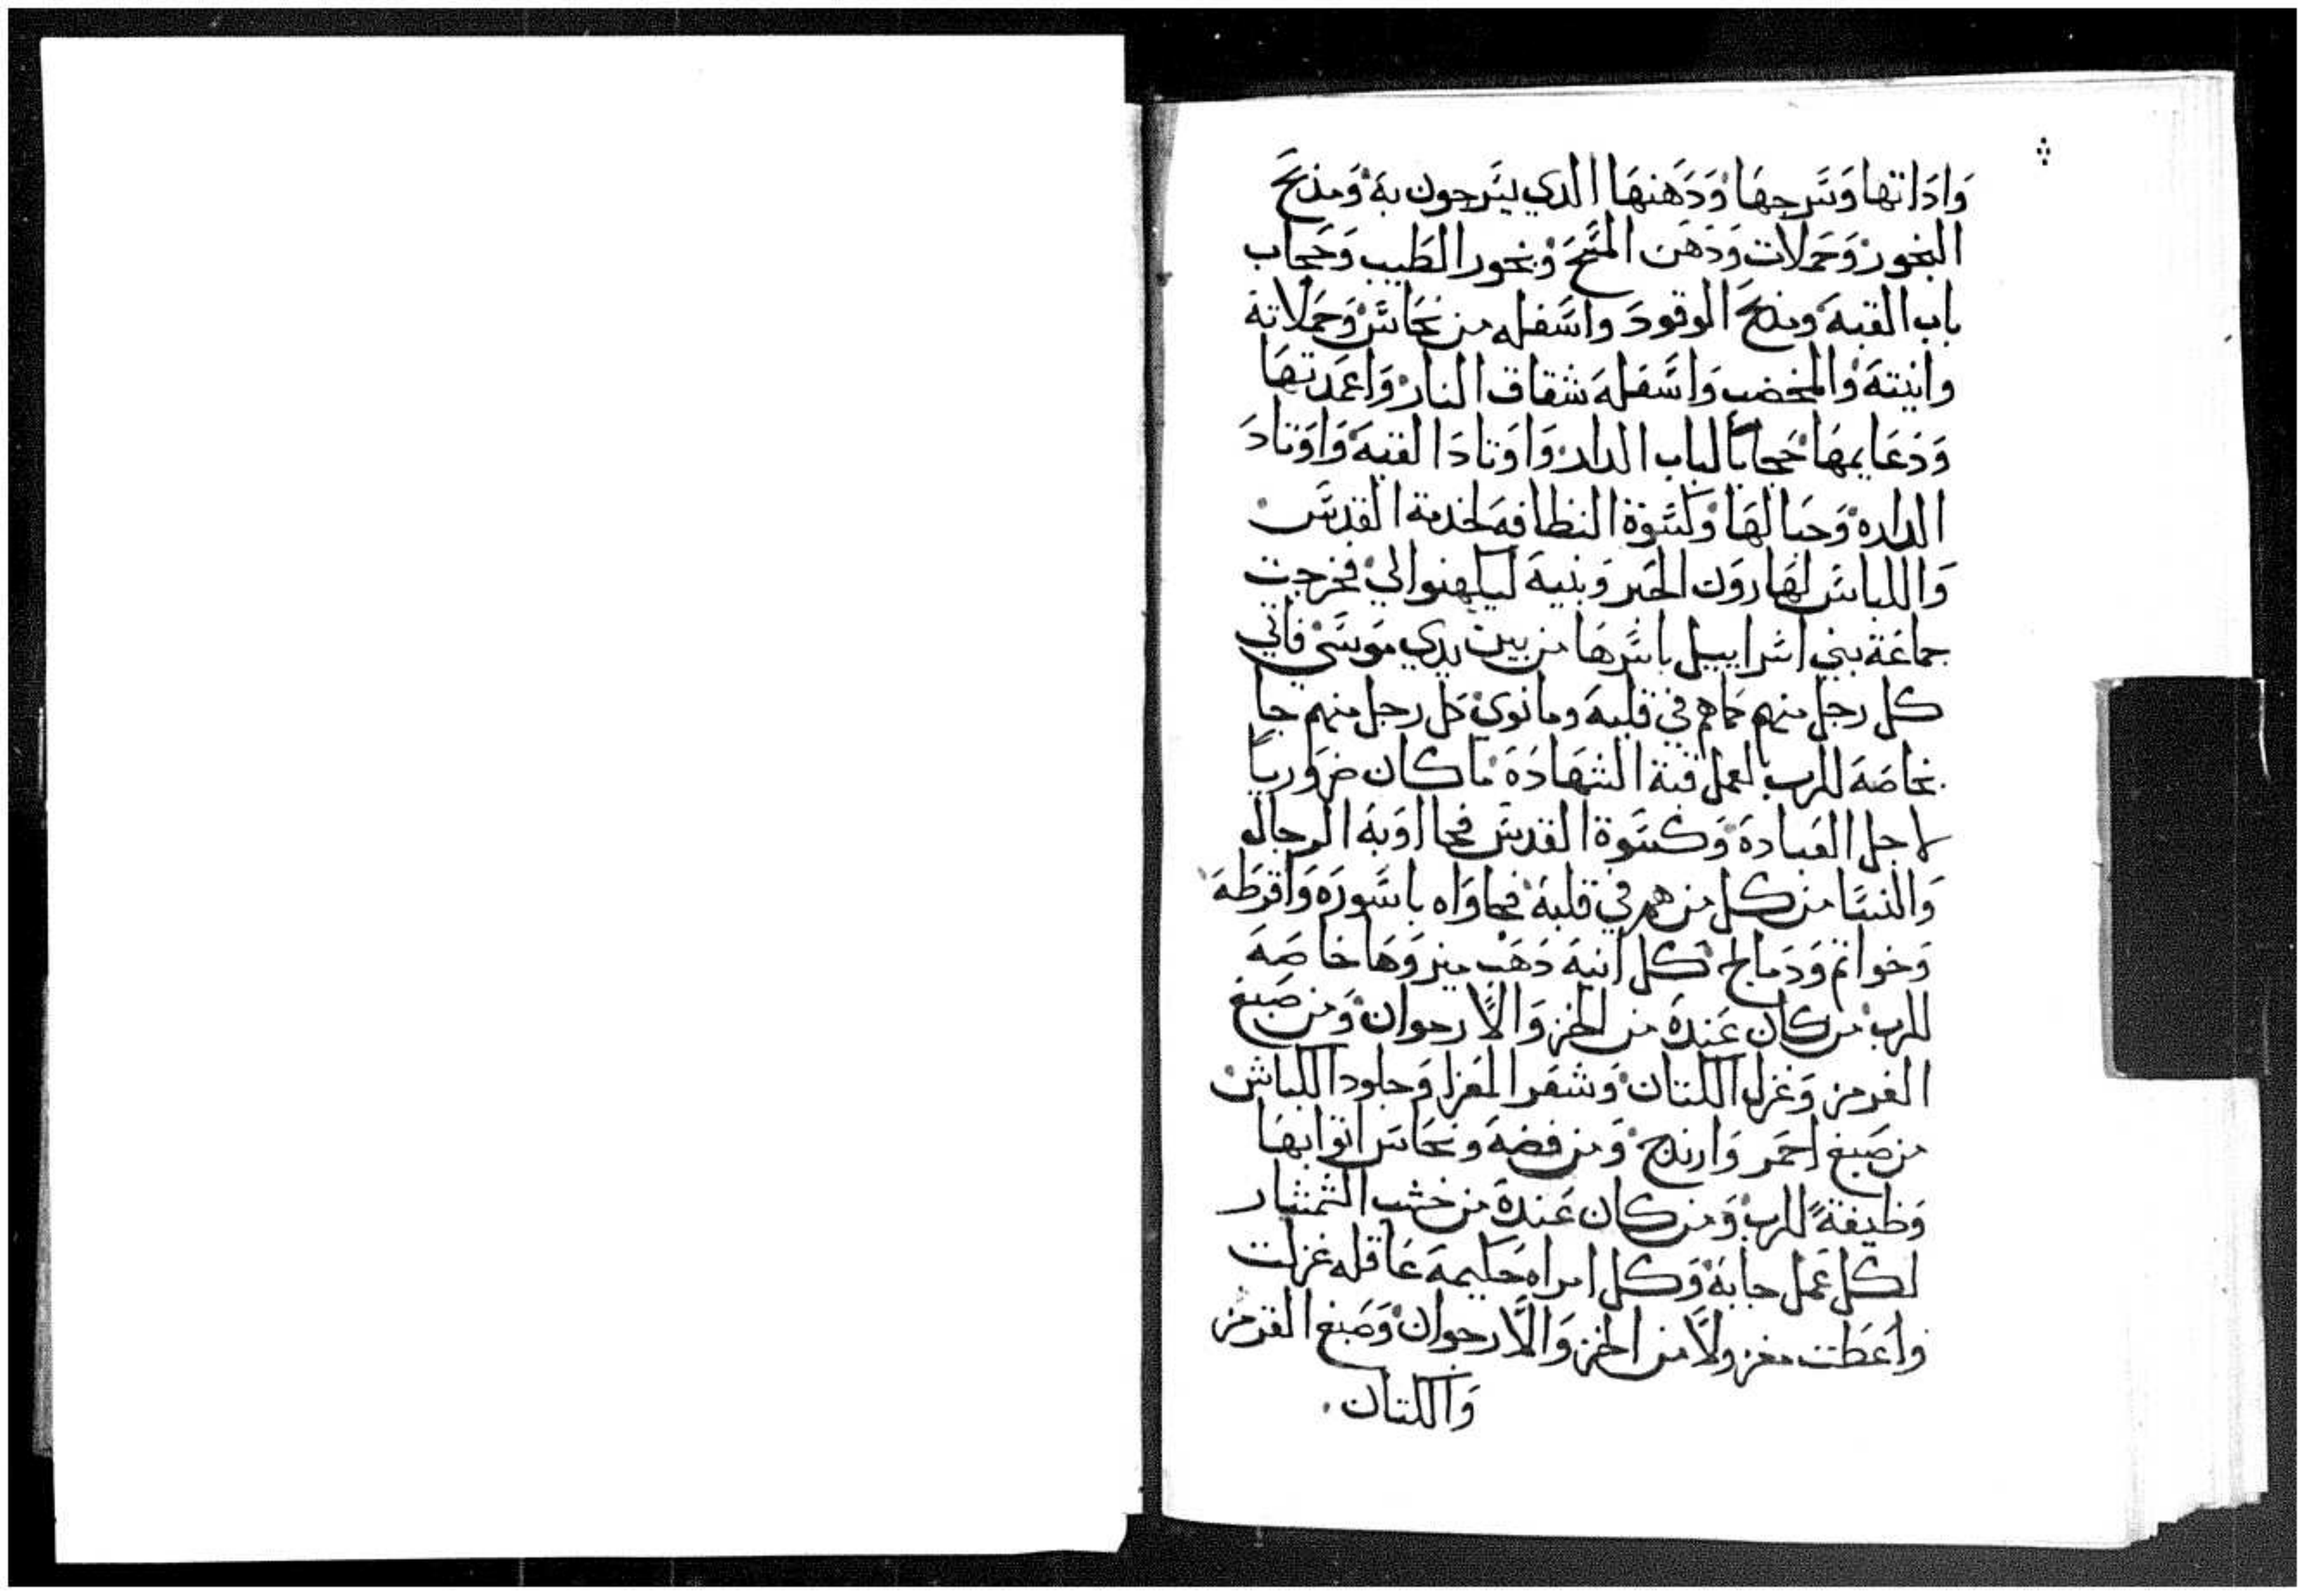 وَادَاتها وَسَرجهَا وَدَهنهَا الدي يسَرجون بهَ وَمذبحَ
البخور وَحَملات وَدهَن المسَحَ وَبخور الطَيب وَحَجاب
باب القبهَ ومذبحَ الوقودَ واسَفله من نحَاسَ وَحَملاتهَ
وانيتهَ والمخضب وَاسَفلهَ شقاق الدار وَاعمَدتهَا
وَدَعَايمهَا حَجاباً لباب الدار وَاوَتادَ القبهَ وَاوَتادَ
الداره وَحبالهَا وَكسَوة النظافهَ لخدمة القدسَ
وَاللباسَ لهَارون الحَبر وَبنيهَ ليكهنوا لي فخرجت
جماعَة بني اسَراييل باسَرهَا من بين يدي موسَى فاتي
كل رجل منهم كماهم في قلبهَ وما نوى كل رجل منهم جا
بخاصَهَ للرب لعمل قبة الشهَادَهَ ما كان ضروَرياً
لاجل العَبادهَ وَكسَوة القدسَ فجااوَبهَ الرجال
وَالنسَا من كل من هم في قلبهَ فجاوَاه باسَورَه وَاقرَطهَ
وَخواتم وَدَمالج كل انيهَ دَهَب ميزوَهَا خاصَهَ
للرب من كان عَندهَ من الخز وَالارجوان وَمن صَبغ
القرمز وَغزل الكتان وَشعَر المعَزا وَجلود الكباش
من صَبغ احمَر وَارندج وَمن فضهَ ونحَاسَ اتوابهَا
وَظيفةً للرب وَمن كان عَندهَ من خشب الشمشار
لكل عَمل جابهَ وَكل امراه حَكيمهَ عَاقله غزلت
وَاعَطت مغزولاً من الخز وَالارجوان وَصَبغ القرمز
وَالكتان.